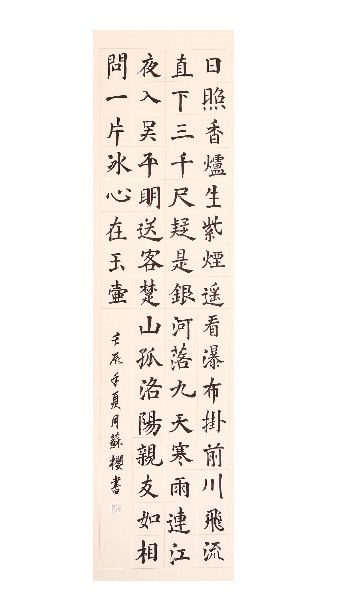 日照香爐生紫煙遥看瀑布掛前川飛流
直下三千尺疑是銀河落九天寒雨連江
夜入吴平明送客楚山孤洛陽親友如相
問一片冰心在玉壺
壬辰年夏月蘇櫻書